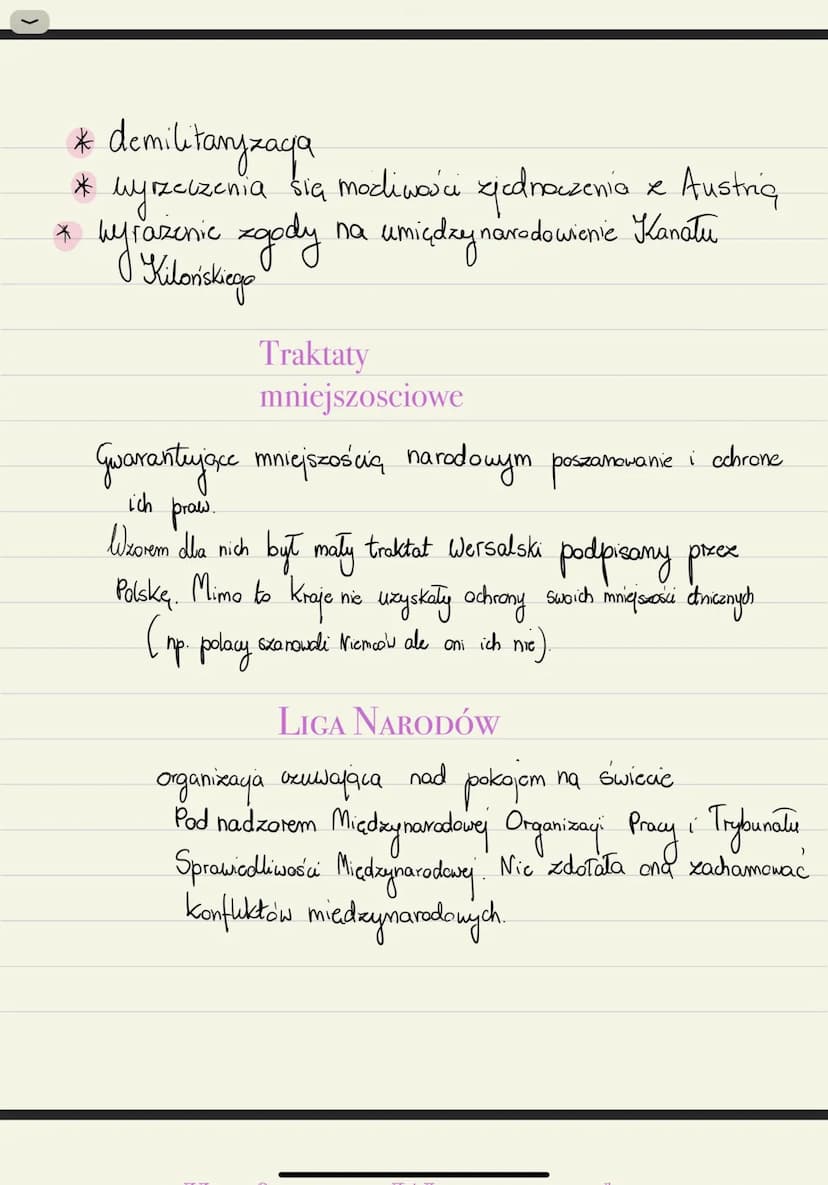 * demilitaryzacja
* wyrzeczenia się możliwości zjednoczenia z Austrią
* wyrażenie zgody na umiędzynarodowienie Kanału
Kilońskiego
Traktaty
mniejszosciowe
Gwarantujące mniejszością narodowym poszanowanie i ochrone
ich praw.
Wzorem dla nich był mały traktat Wersalski podpisany przez
Polskę. Mimo to kraje nie uzyskały ochrony swoich mniejszości etnicznych
(np. polacy szanowali Niemców ale oni ich nie).
LIGA NARODÓW
organizacja czuwająca nad pokojem na świecie
Pod nadzorem Międzynarodowej Organizacji Pracy i Trybunału
Sprawiedliwości Międzynarodowej. Nie zdołała ona zachamować
konfliktów miedzynarodowych.